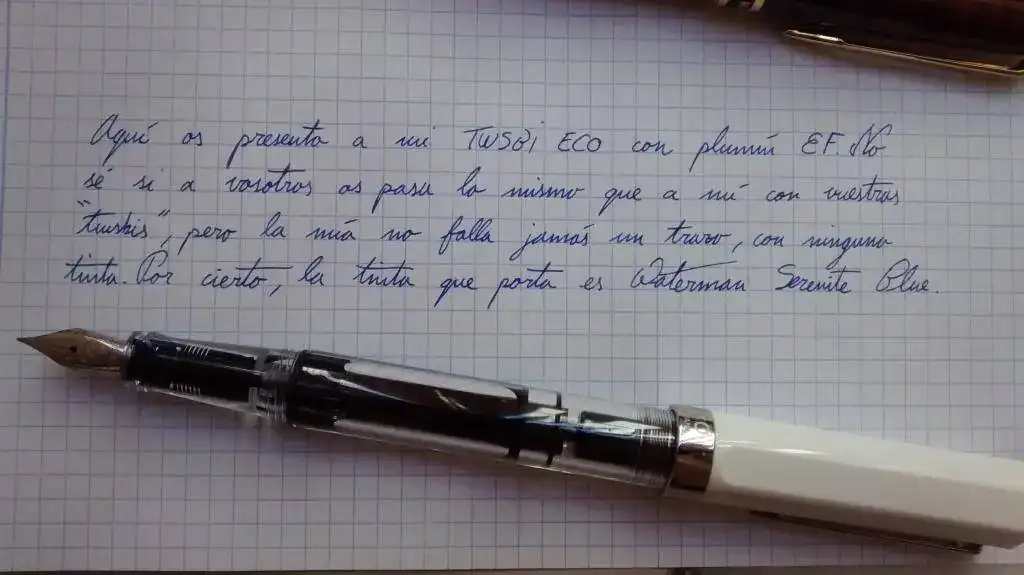 Aquí os presento a mi TWSBI ECO con plumín EF. No
sé si a vosotros os pasa lo mismo que a mí con vuestras
"twsbis", pero la mía no falla jamás un trazo, con ninguna
tinta. Por cierto, la tinta que porta es Waterman Serenite Blue.